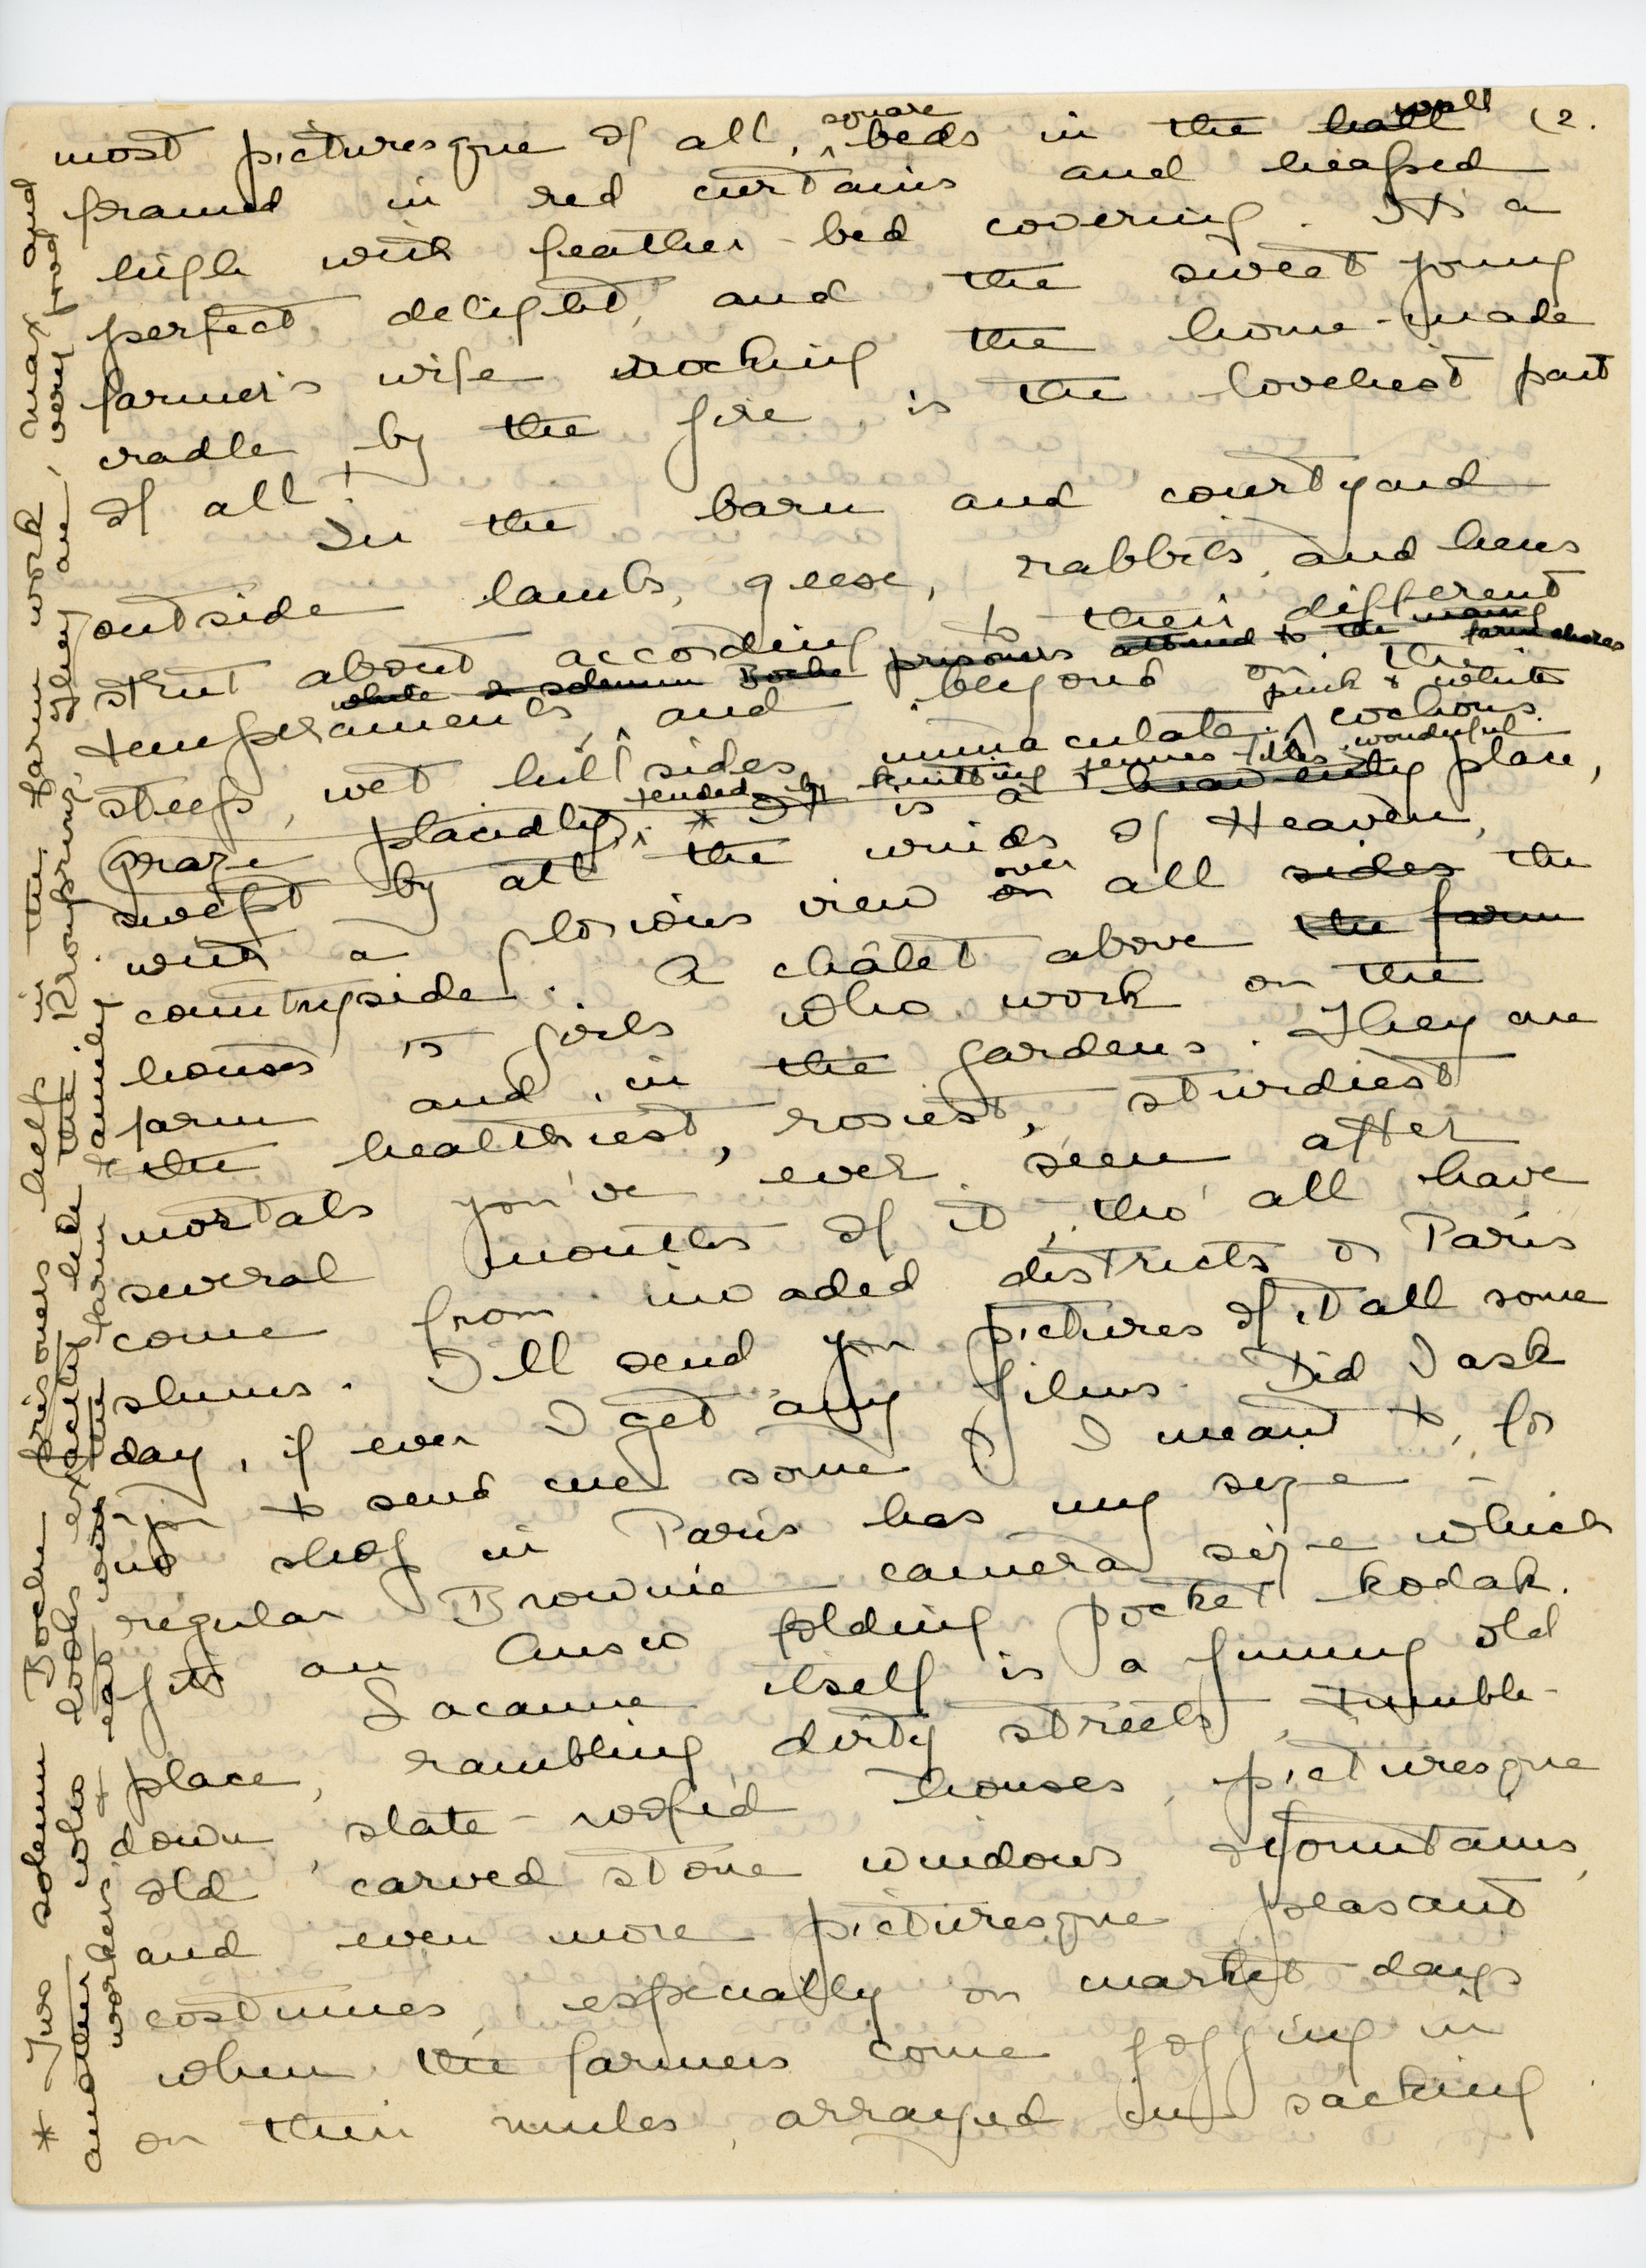 (2.
most picturesque of all, ^square beds in the hall wall
framed in red curtains and heaped
high with feather-bed covering. It's a
perfect delight, and the sweet young
farmer's wife rocking the home-made
cradle by the fire is the loveliest part
of all!
In the barn and courtyard
outside lambs, geese, rabbits, and hens
strut about according to their different
while 2 solemn Boche prisoners attend to the many farm chores
temperaments, ^ and beyond on the
steep, wet hillsides, immaculate ^ pink & white cochons
graze placidly, ^ tended by knitting femmes. * It is a heavenly wonderful place,
swept by all the winds of Heaven,
with a glorious view on over all sides the
countryside. A châlet above the farm
houses 15 girls who work on the
farm and in the gardens. They are
the healthiest, rosiest, sturdiest
mortals you've ever seen after
several months of it, tho' all have
come from invaded districts or Paris
slums. I'll send you pictures of it all some
day, if ever I get any films. Did I ask
you to send me some? I meant to, for
no shop in Paris has my size –
regular Brownie camera size which
fits an Ansco folding pocket kodak.
Lacaune itself is a funny old
place, rambling, dirty streets, tumble-
down, slate-roofed houses, picturesque
old carved stone windows & fountains,
and even more picturesque peasant
costumes, especially on market-days
when the farmers come jogging in
on their mules, arrayed in sacking
* Two solemn Boche prisoners help in the farm work, Max and
another who looks exactly like the Kronprinz. They are very good
workers & eat with the farm family.